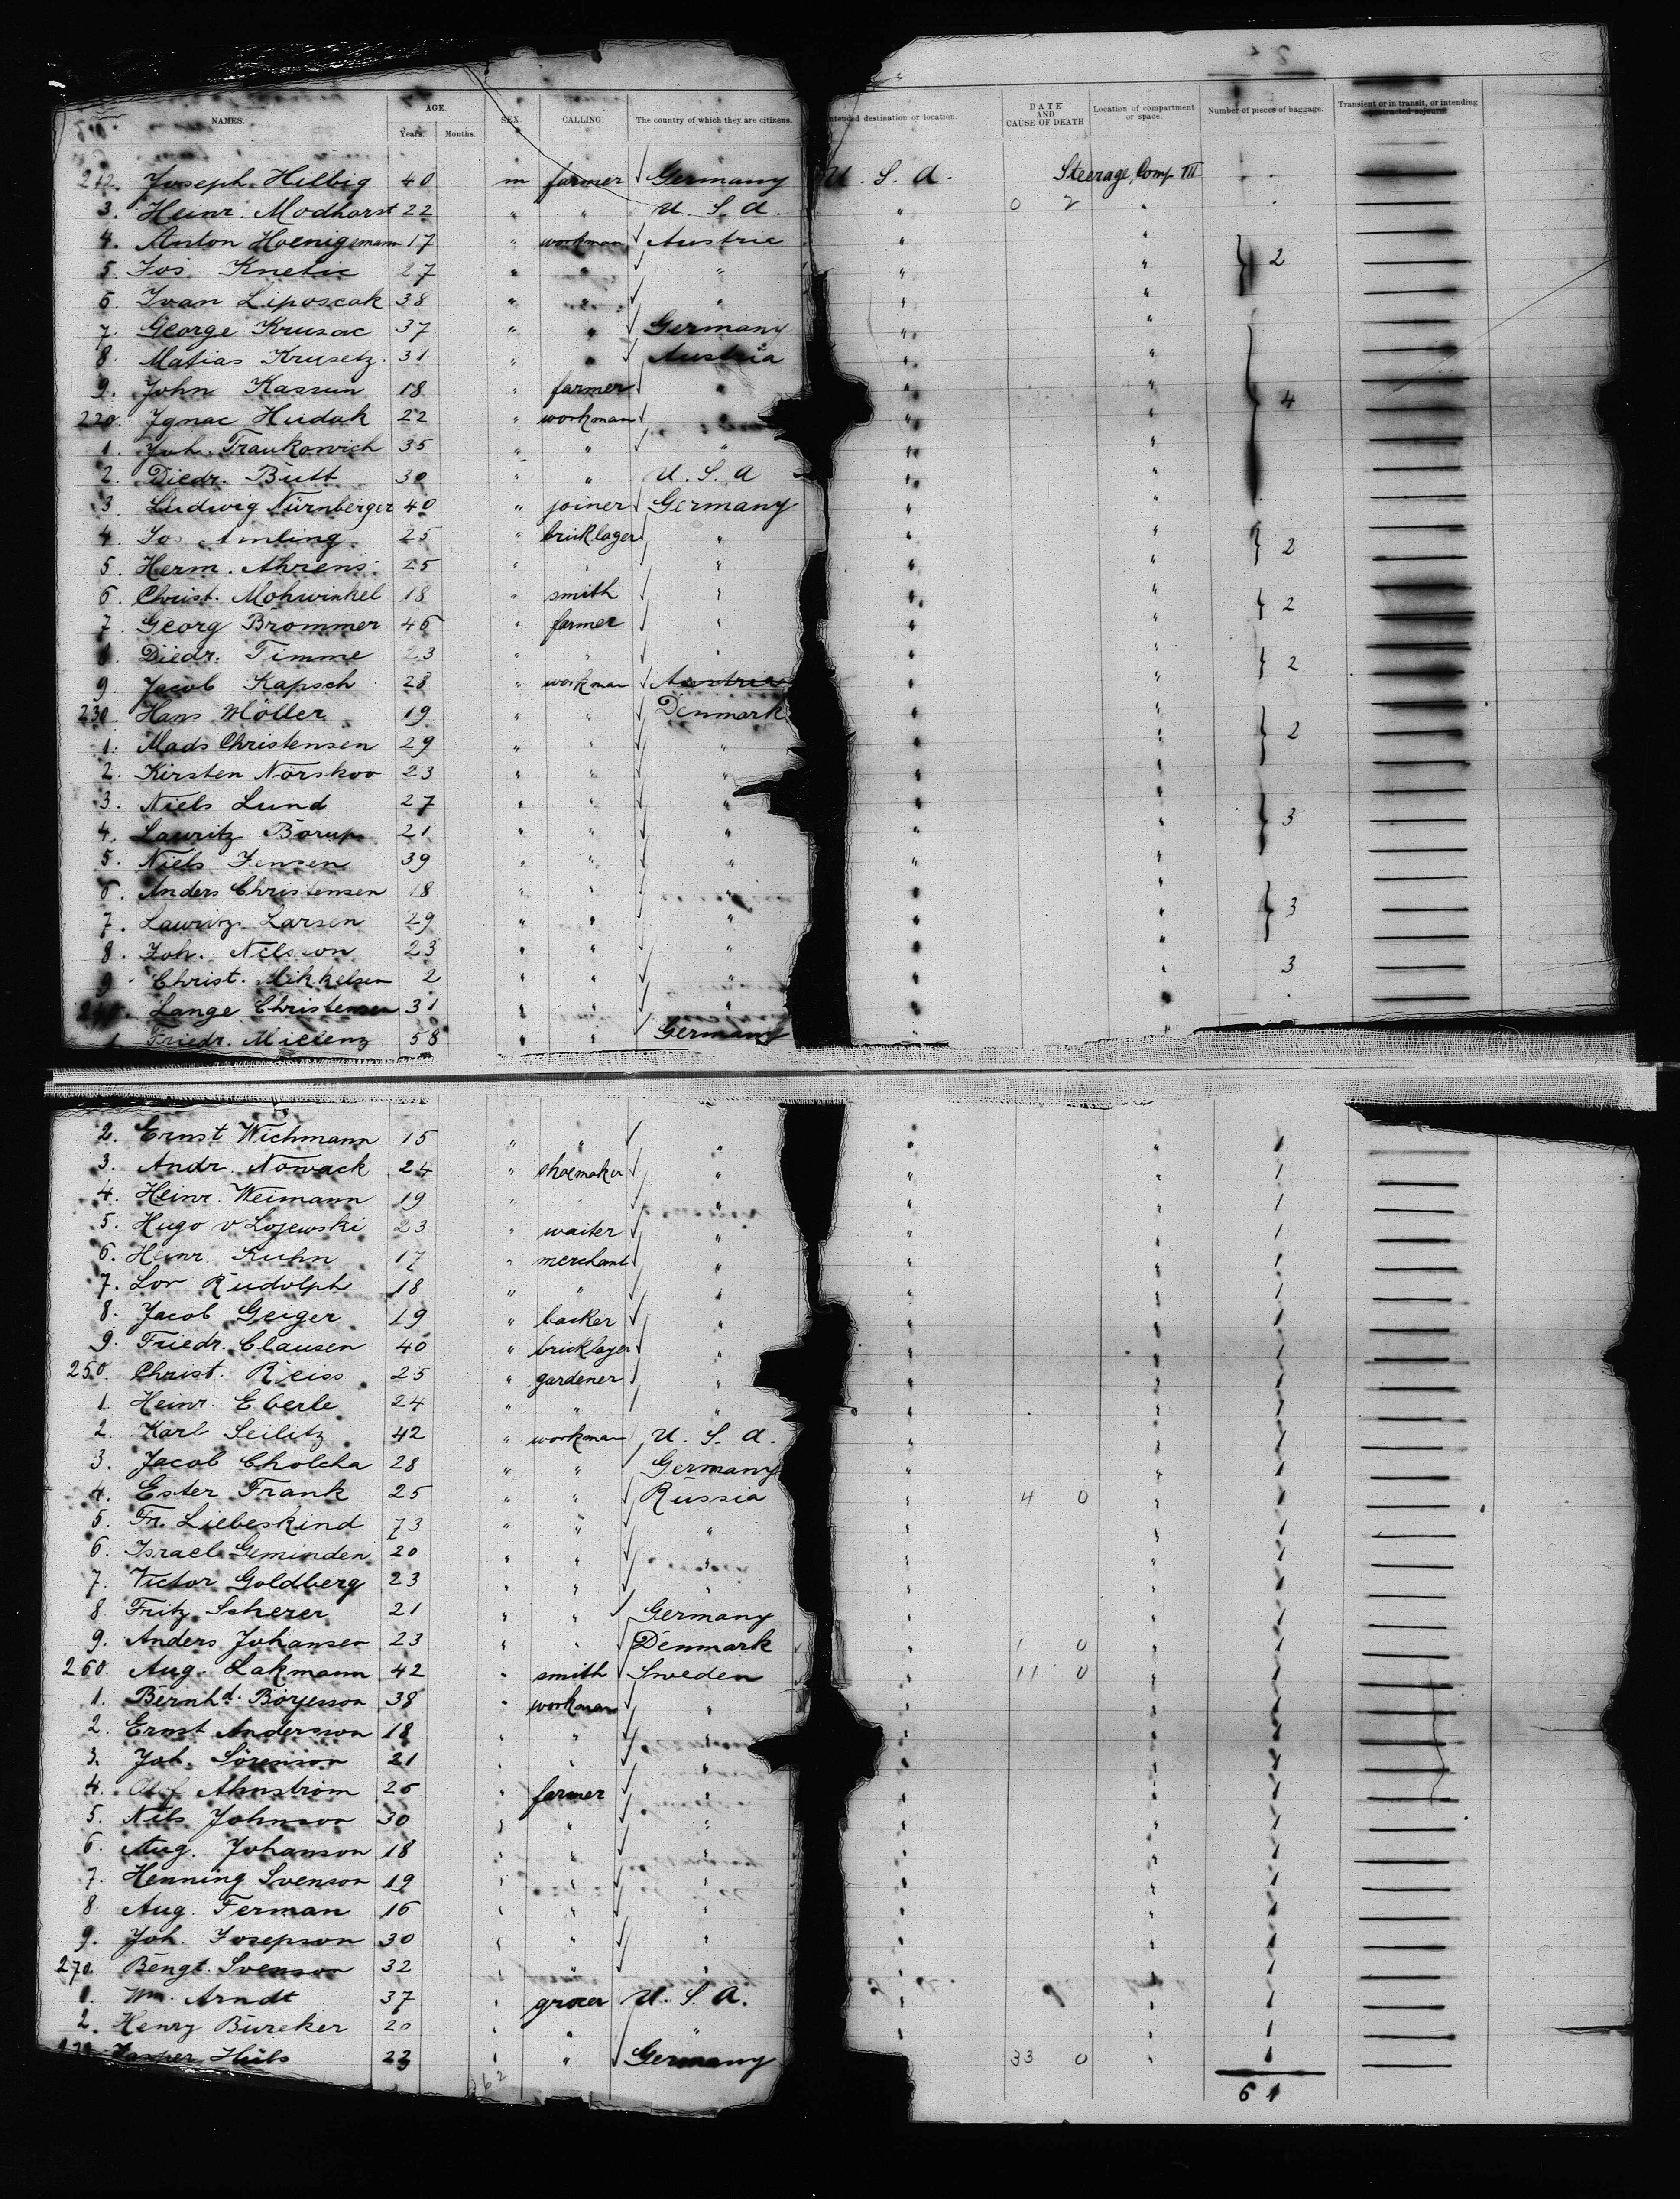 NAMES. AGE. Years. Months. SEX. CALLING. The country of which they are citizens. Intended destination or location. DATE AND CAUSE OF DEATH Location of compartment or space. Number of pieces of baggage. Transient or in transit, or intending protracted sojourn
212. Joseph Hilbig 40 m farmer Germany U. S. A. Steerage Comp III
3. Heinr. Modhorst 22 " " U. S. A. " 0 2 "
4. Anton Hoenigsmann 17 " workman Austria " "
5. Jos. Knetic 27 " " " " " 2
6. Ivan Liposcak 38 " " " " "
7. George Krusac 37 " " Germany " "
8. Matias Krusetz. 31 " " Austria " "
9. John Kassun 18 " farmer " " "
220. Ignac Hudak 22 " workman " " 4
1. Joh. Traukowich 35 " " " " "
2. Diedr. Butt 30 " " U. S. A " "
3. Ludwig Nürnberger 40 " joiner Germany " "
4. Jos Amling 25 " bricklager " " " 2
5. Herm. Ahrens 25 " " " " "
6. Christ. Mohwinkel 18 " smith " " " 2
7. Georg Brommer 46 " farmer " " "
8. Diedr. Timme 23 " " " " " 2
9. Jacob Kapsch 28 " workman Austria " "
230. Hans Möller 19 " " Denmark " "
1. Mads Christensen 29 " " " " " 2
2. Kirsten Norskov 23 " " " " "
3. Niels Lund 27 " " " " "
4. Lauritz Borup 21 " " " " " 3
5. Niels Jensen 39 " " " " "
6. Anders Christensen 18 " " " " "
7. Lauritz Larsen 29 " " " " " 3
8. Joh. Nilsson 23 " " " " "
9 Christ. Mikkelsen 2 " " " " " 3
240. Lange Christensen 31 " " " " "
1. Friedr. Mielenz 58 " " Germany
2. Ernst Wichmann 15 " " " " " 1
3. Andr. Nowack 24 " shoemaker " " " 1
4. Heinr. Weimann 19 " " " " " 1
5. Hugo v Lojewski 23 " waiter " " " 1
6. Heinr. Kuhn 17 " merchant " " " 1
7. Lor Rudolph 18 " " " " " 1
8. Jacob Geiger 19 " backer " " " 1
9. Friedr. Clausen 40 " bricklayer " " " 1
250. Christ. Reiss 25 " gardener " " " 1
1. Heinr. Eberle 24 " " " " " 1
2. Karl Seilitz 42 " workman U. S. A. " " 1
3. Jacob Cholcha 28 " " Germany " " 1
4. Ester Frank 25 " " Russia " 4 0 " 1
5. Fr. Liebeskind 73 " " " " " 1
6. Israel Geminden 20 " " " " " 1
7. Victor Goldberg 23 " " " " " 1
8. Fritz Scherer 21 " " Germany " " 1
9. Anders Johansen 23 " " Denmark " 1 0 " 1
260. Aug. Lakmann 42 " smith Sweden " 11 0 " 1
1. Bernhd. Borjesson 38 " workman " " " 1
2. Ernst Andersson 18 " " " " " 1
3. Joh. Sörenson 21 " " " " " 1
4. Olof Ahnstrom 26 " farmer " " " 1
5. Nils Johnson 30 " " " " " 1
6. Aug. Johanson 18 " " " " " 1
7. Henning Svenson 19 " " " " " 1
8. Aug. Ferman 16 " " " " " 1
9. Joh. Josepson 30 " " " " " 1
270. Bengt. Svenson 32 " " " " " 1
1. Wm. Arndt 37 " grocer U. S. A. " " 1
2. Henry Bureker 20 " " " " " 1
273 Kasper Hüls 23 " " Germany 33 0 " 1
262 61